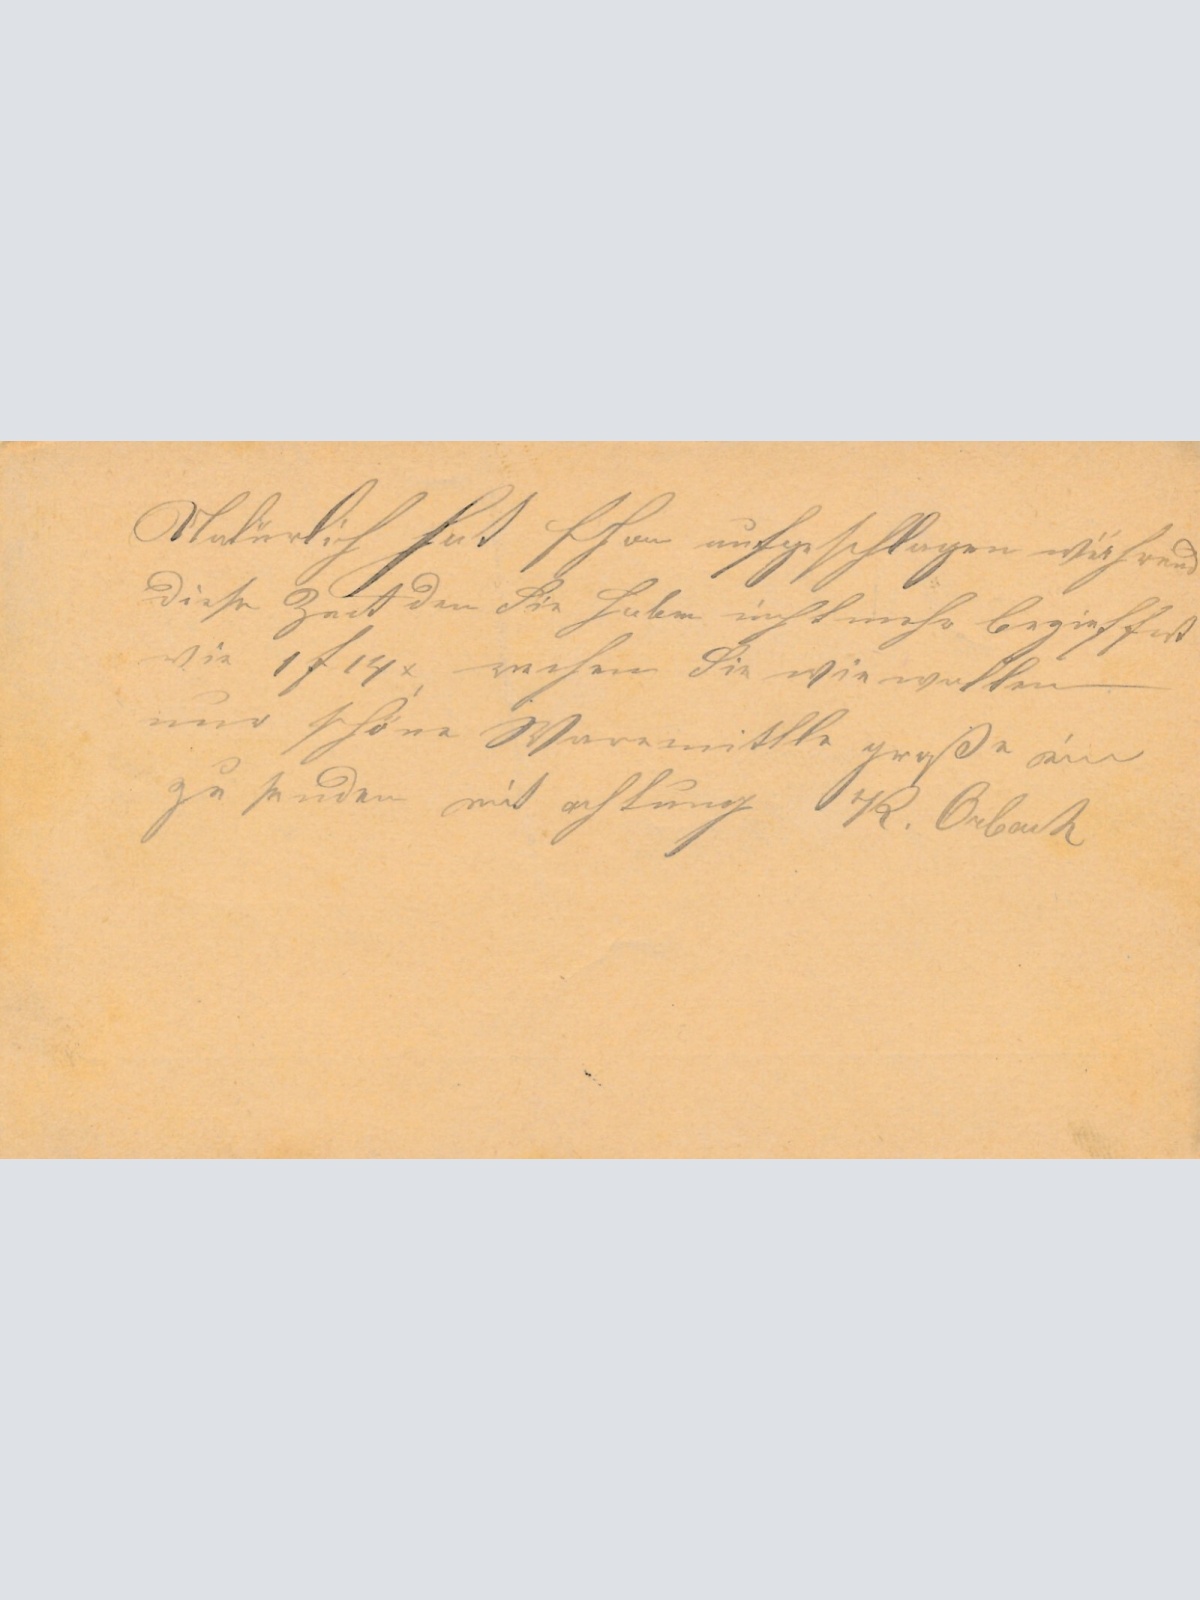 Natürlich hat schon aufgeschlagen während
diese Zeit den Sie haben nicht mehr
wie 1 f 14 x, rechen Sie wie wollen
nur schöne Waremittle große
zu senden mit achtung R. Orbach